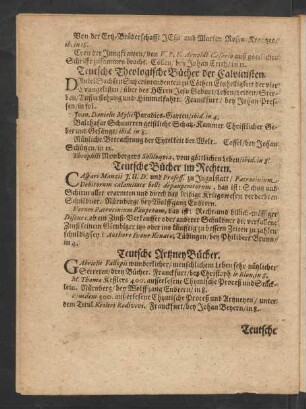 Von der Ertz-Brüderschafft JEsu und Mariae Rosen-Krantzes/
ib. in 15.
Cron der Jungfrawen/ von V. P. F. Arnoldi Cesareo auß Göttlicher
Schrifft zusammen bracht. Cöllen/ bey Johan
Teutsche Theologische Bücher der Calvinisten.
Superintendenten zu Cöthen
Evangelisten/ über des HErrn Jesu Leiden/ Sterben/
Aufferstehung und Himmelfahrt. Franckfurt/ bey Johan
in fol.
Joan. Danielis Paradies-Garten/ ibid. in 4.
Balthasar Schnurren geistliche Schatz-Kammer Christlicher Ge-
bet und Gesänge/ ibid. in 8.
Nützliche Betrachtung der Eytelkeit der Welt. Cassel/ bey Johan
Schützen/ in 12.
Theophili Newbergers vom göttlichen leben/ ibid. in 8.
Teutsche Bücher im Rechten.
CAspari Manzii J. U. D. und Profess. zu Ingolstatt/ Patrocinium
Debitorum calamitate belli depauperatorum, das ist: Schutz und
Schirm aller erarmten und durch das leidige Kriegswesen verderbten
Schuldner. Nürnberg/ bey Wolffgang Endtern.
Verum Patrocinium Pauperum, das ist: Rechts und billich-mässiger
Discurs, ob ein Zinß-Verkauffer oder anderer Schuldner alle verfallene
Zinß seinem Gläubiger
schuldig sey? Tübingen/ bey Philibert Brunn/
in 4.
Teutsche Artzney Bücher.
GAbrielis Fallopii wunderlicher/ menschlichem Leben sehr nützlicher
Secreten/ drey Bücher. Franckfurt/ bey Christoph in 8.
M. Thomae Kesslers 400. außerlesene Chymische Proceß und Stück-
lein. Nürnberg/ bey Wolffgang Endtern/ in 8.
Ejusdem 500. außerlesene Chymische Proceß und Artzneyen/ unter
dem Titul Kesleri Redivivi. Franckfurt/ bey Johan Beyern/ in 8.
Teutsche